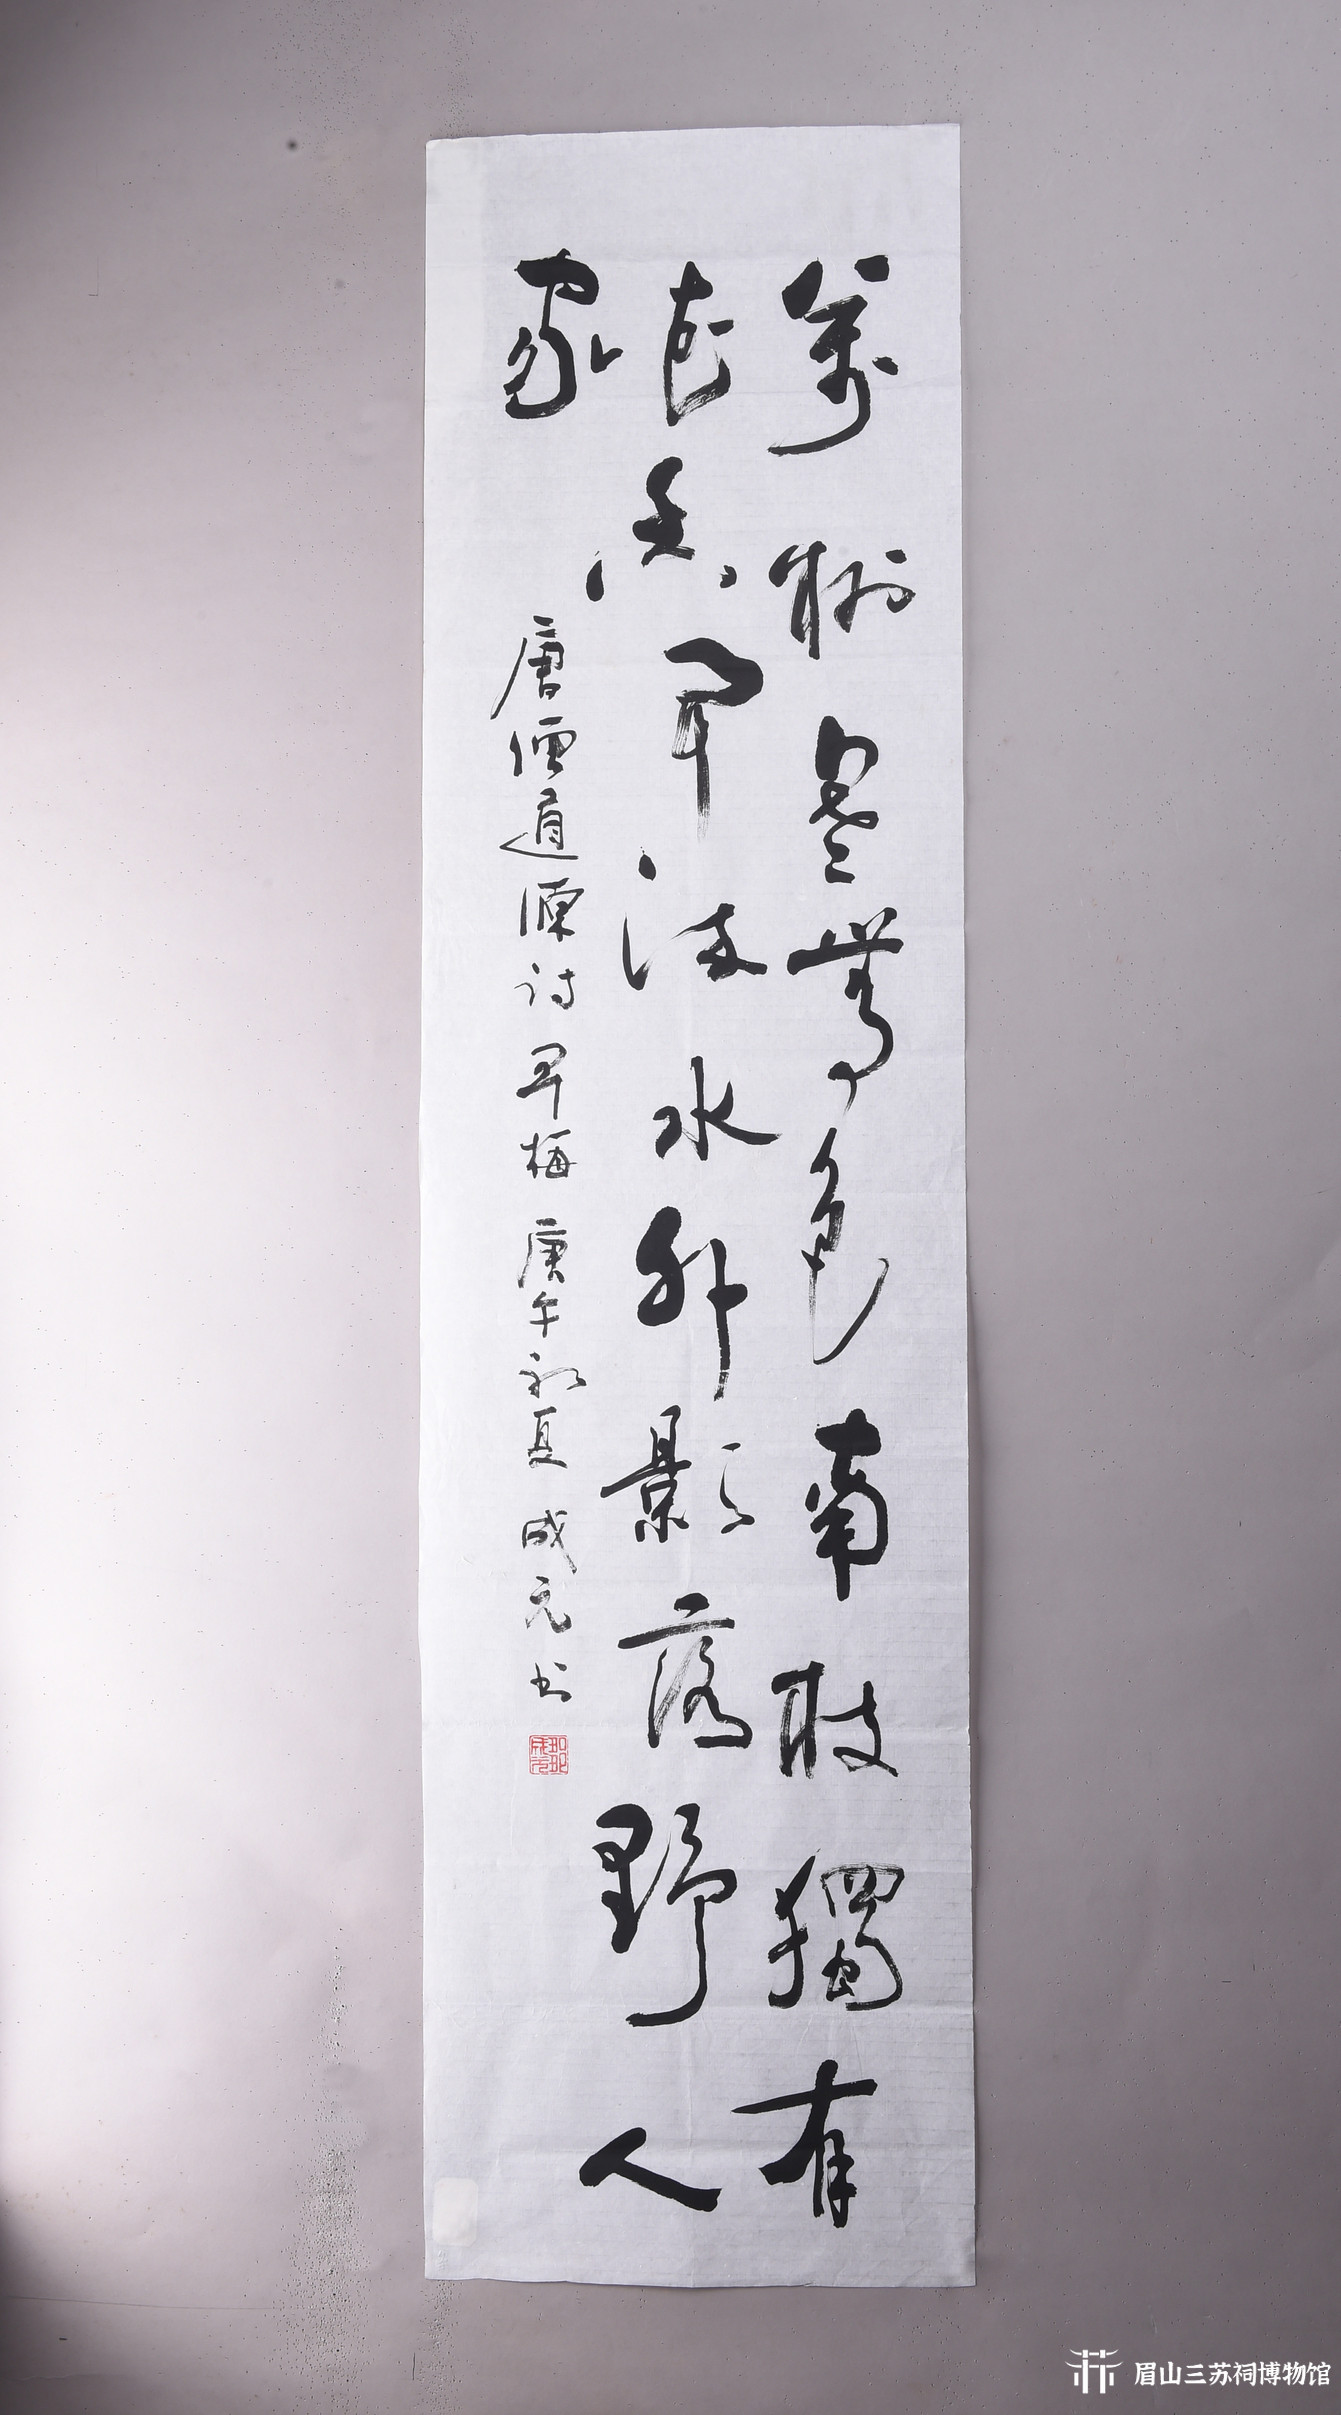 萬樹寒無色南枝獨有
花香聞流水處影落野人
家
唐僧道源诗 早梅 庚午初夏 成元书
眉山三苏祠博物馆